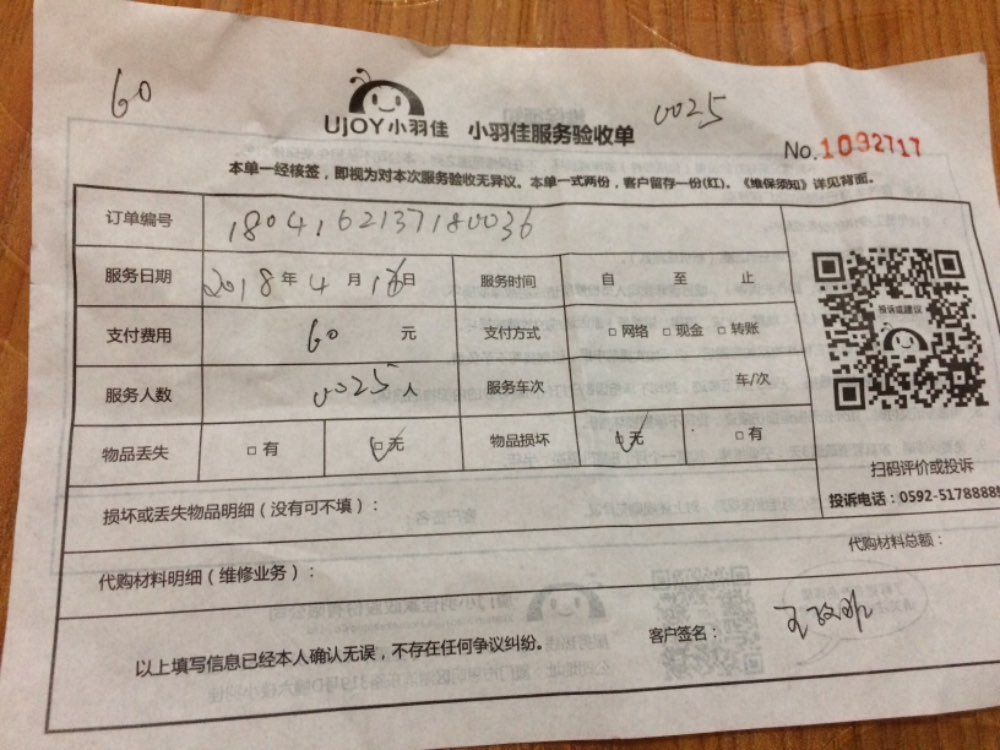 60
0025
UJOY小羽佳 小羽佳服务验收单
No.1092717
本单一经核签，即视为对本次服务验收无异议。本单一式两份，客户留存一份(红)。《维保须知》详见背面。
订单编号 1804162137180036
服务日期 2018年4月16日 服务时间 自 至 止
支付费用 60 元 支付方式 □网络 □现金 □转账
服务人数 0025人 服务车次 车/次
物品丢失 □有 □无 物品损坏 □无 □有
投诉或建议
扫码评价或投诉
投诉电话：0592-5178888
损坏或丢失物品明细（没有可不填）：
代购材料明细（维修业务）：
代购材料总额：
以上填写信息已经本人确认无误，不存在任何争议纠纷。
客户签名：